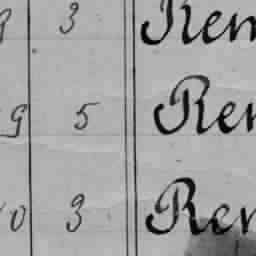 9 3 Rem
9 5 Ren
0 3 Ren